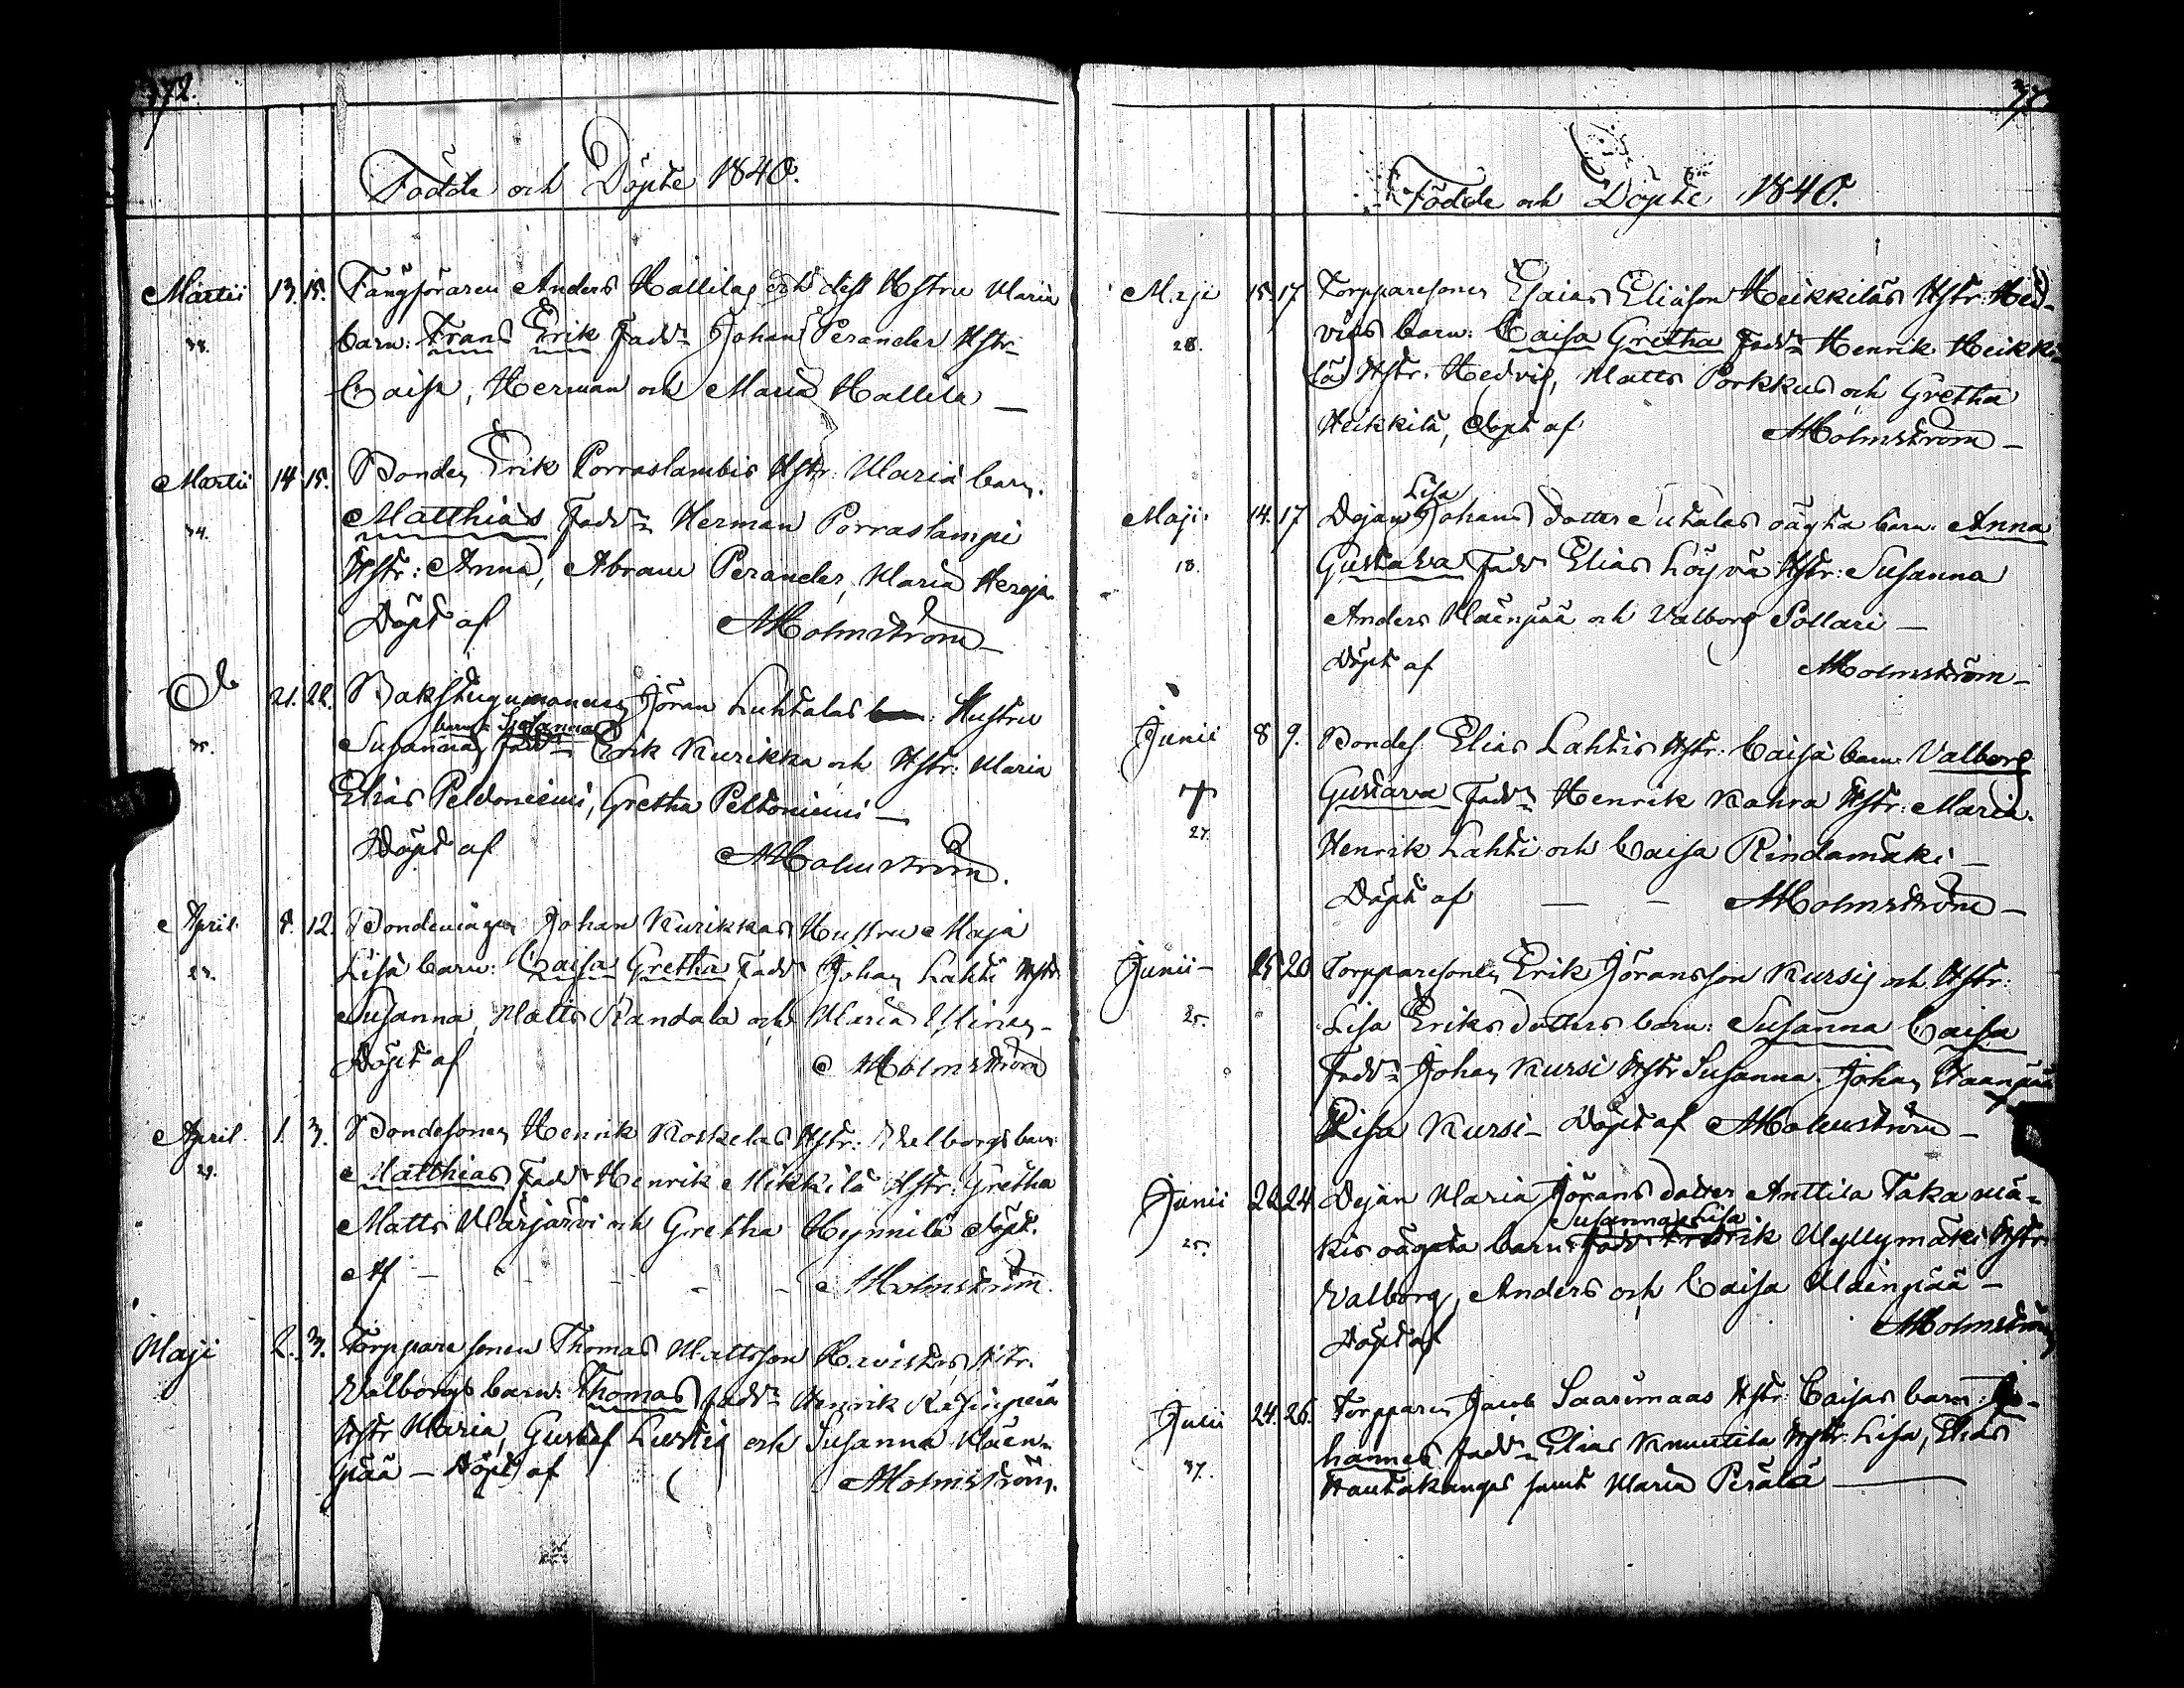 172.
Födde och Döpte 1840.
Martii 13. 15. Fångföraren Anders Hallilas och dess Hstru Maria
33. barn: Frans Erik Fadd. Johan Perander Hstr.
Caisa, Herman och Maria Hallila —
Martii 14. 15. Bonden Erik Porraslambis Hstr: Maria barn.
34. Matthias Fadd. Herman Porraslampi
Hstr: Anna, Abram Perander, Maria Herrja
Döpt af AHolmström —
21. 22. Backstugumannen Jöran Luhtalas Hustru
barn: Susanna
35. Susannas Fadd. Erik Kurikka och Hstr: Maria
Elias Peldoniemi, Gretha Peltoniemi —
Döpt af AHolmström.
April 8. 12. Bondemågen Johan Kurikkas Hustru Maja
23. Lisa barn: Caisa Gretha Fadd Johan Lahti Hstr.
Susanna, Matts Randala och Maria
Döpt af AHolmström
April 1. 3. Bondesonen Henrik Koskelas Hstr: Valborgs barn:
29. Matthias Fadd Henrik Mikkilä Hstr: Gretha
Matts Marjarvi och Gretha Hynnilä Döpt.
Af — AHolmström.
Maji 2. 3. Torpparesonen Thomas Mattsson Havistos Hstr.
Valborgs barn: Thomas Fadd. Henrik
Hstr Maria, Gustaf Lustig och Susanna Mäen-
pää — Döpt af AHolmström.
Födde och Döpte 1840.
Maji 15. 17 Torpparesonen Esaias Eliasson Heikkiläs Hstr: Hed-
28. vigs barn: Caisa Gretha Fadd. Henrik Heikki-
lä Hstr. Hedvig, Matts Porkkus och Gretha
Heikkilä, Döpt af AHolmström —
Lisa
Maji 14. 17 Dejan Johans dotter oägta barn: Anna
18. Gustava Fadd Elias Löyvä Hstr: Susanna
Anders Mäenpää och Valborg Pollari —
Döpt af AHolmström —
Junii 8 9. Bondes Elias Lahtis Hstr: Caisa barn Valborg
27. Gustava Fadd. Henrik Kahra Hstr: Maria.
Henrik Lahti och Caisa Rindamäki —
Döpt af — — AHolmström —
Junii — 25 26 Torpparesonen Erik Jöransson Kursis och Hstr:
25. Lisa Eriks dotters barn: Susanna Caisa
Fadd. Johan Kursi Hstr Susanna. Johan Haanpää
Lisa Kursi — Döpt af AHolmström —
Junii 22 24 Dejan Maria Jörans dotter Anttila Takamä-
Susanna Lisa
25. kis oägata barn: Fadd Fredrik Myllymäki Hstr:
Valborg, Anders och Caisa Mäenpää —
Döpt af AHolmström
Julii 24. 26. Torpparen Jacob Saarimaas Hstr: Caisas barn: Jo-
37. hannes Fadd. Elias Knuutila Hstr: Lisa, Elias
Hautakangas samt Maria Perälä —